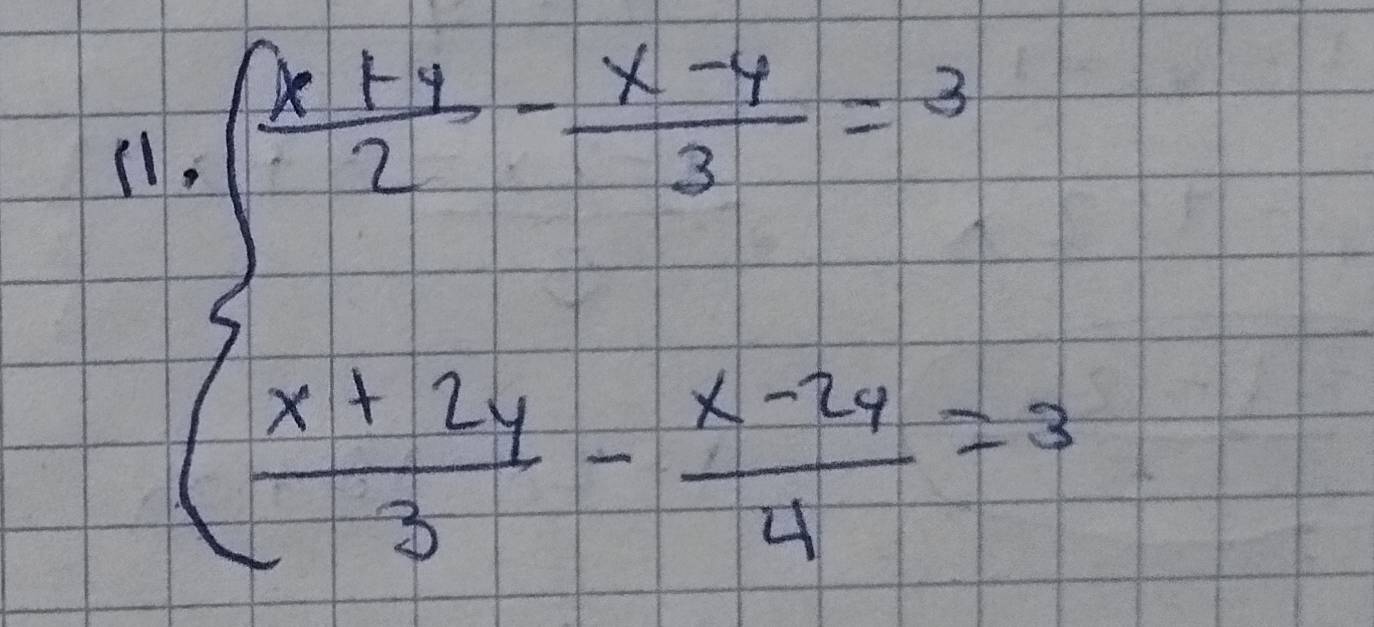 11. { (x + y)/2 - (x - y)/3 = 3
(x + 2y)/3 - (x - 2y)/4 = 3